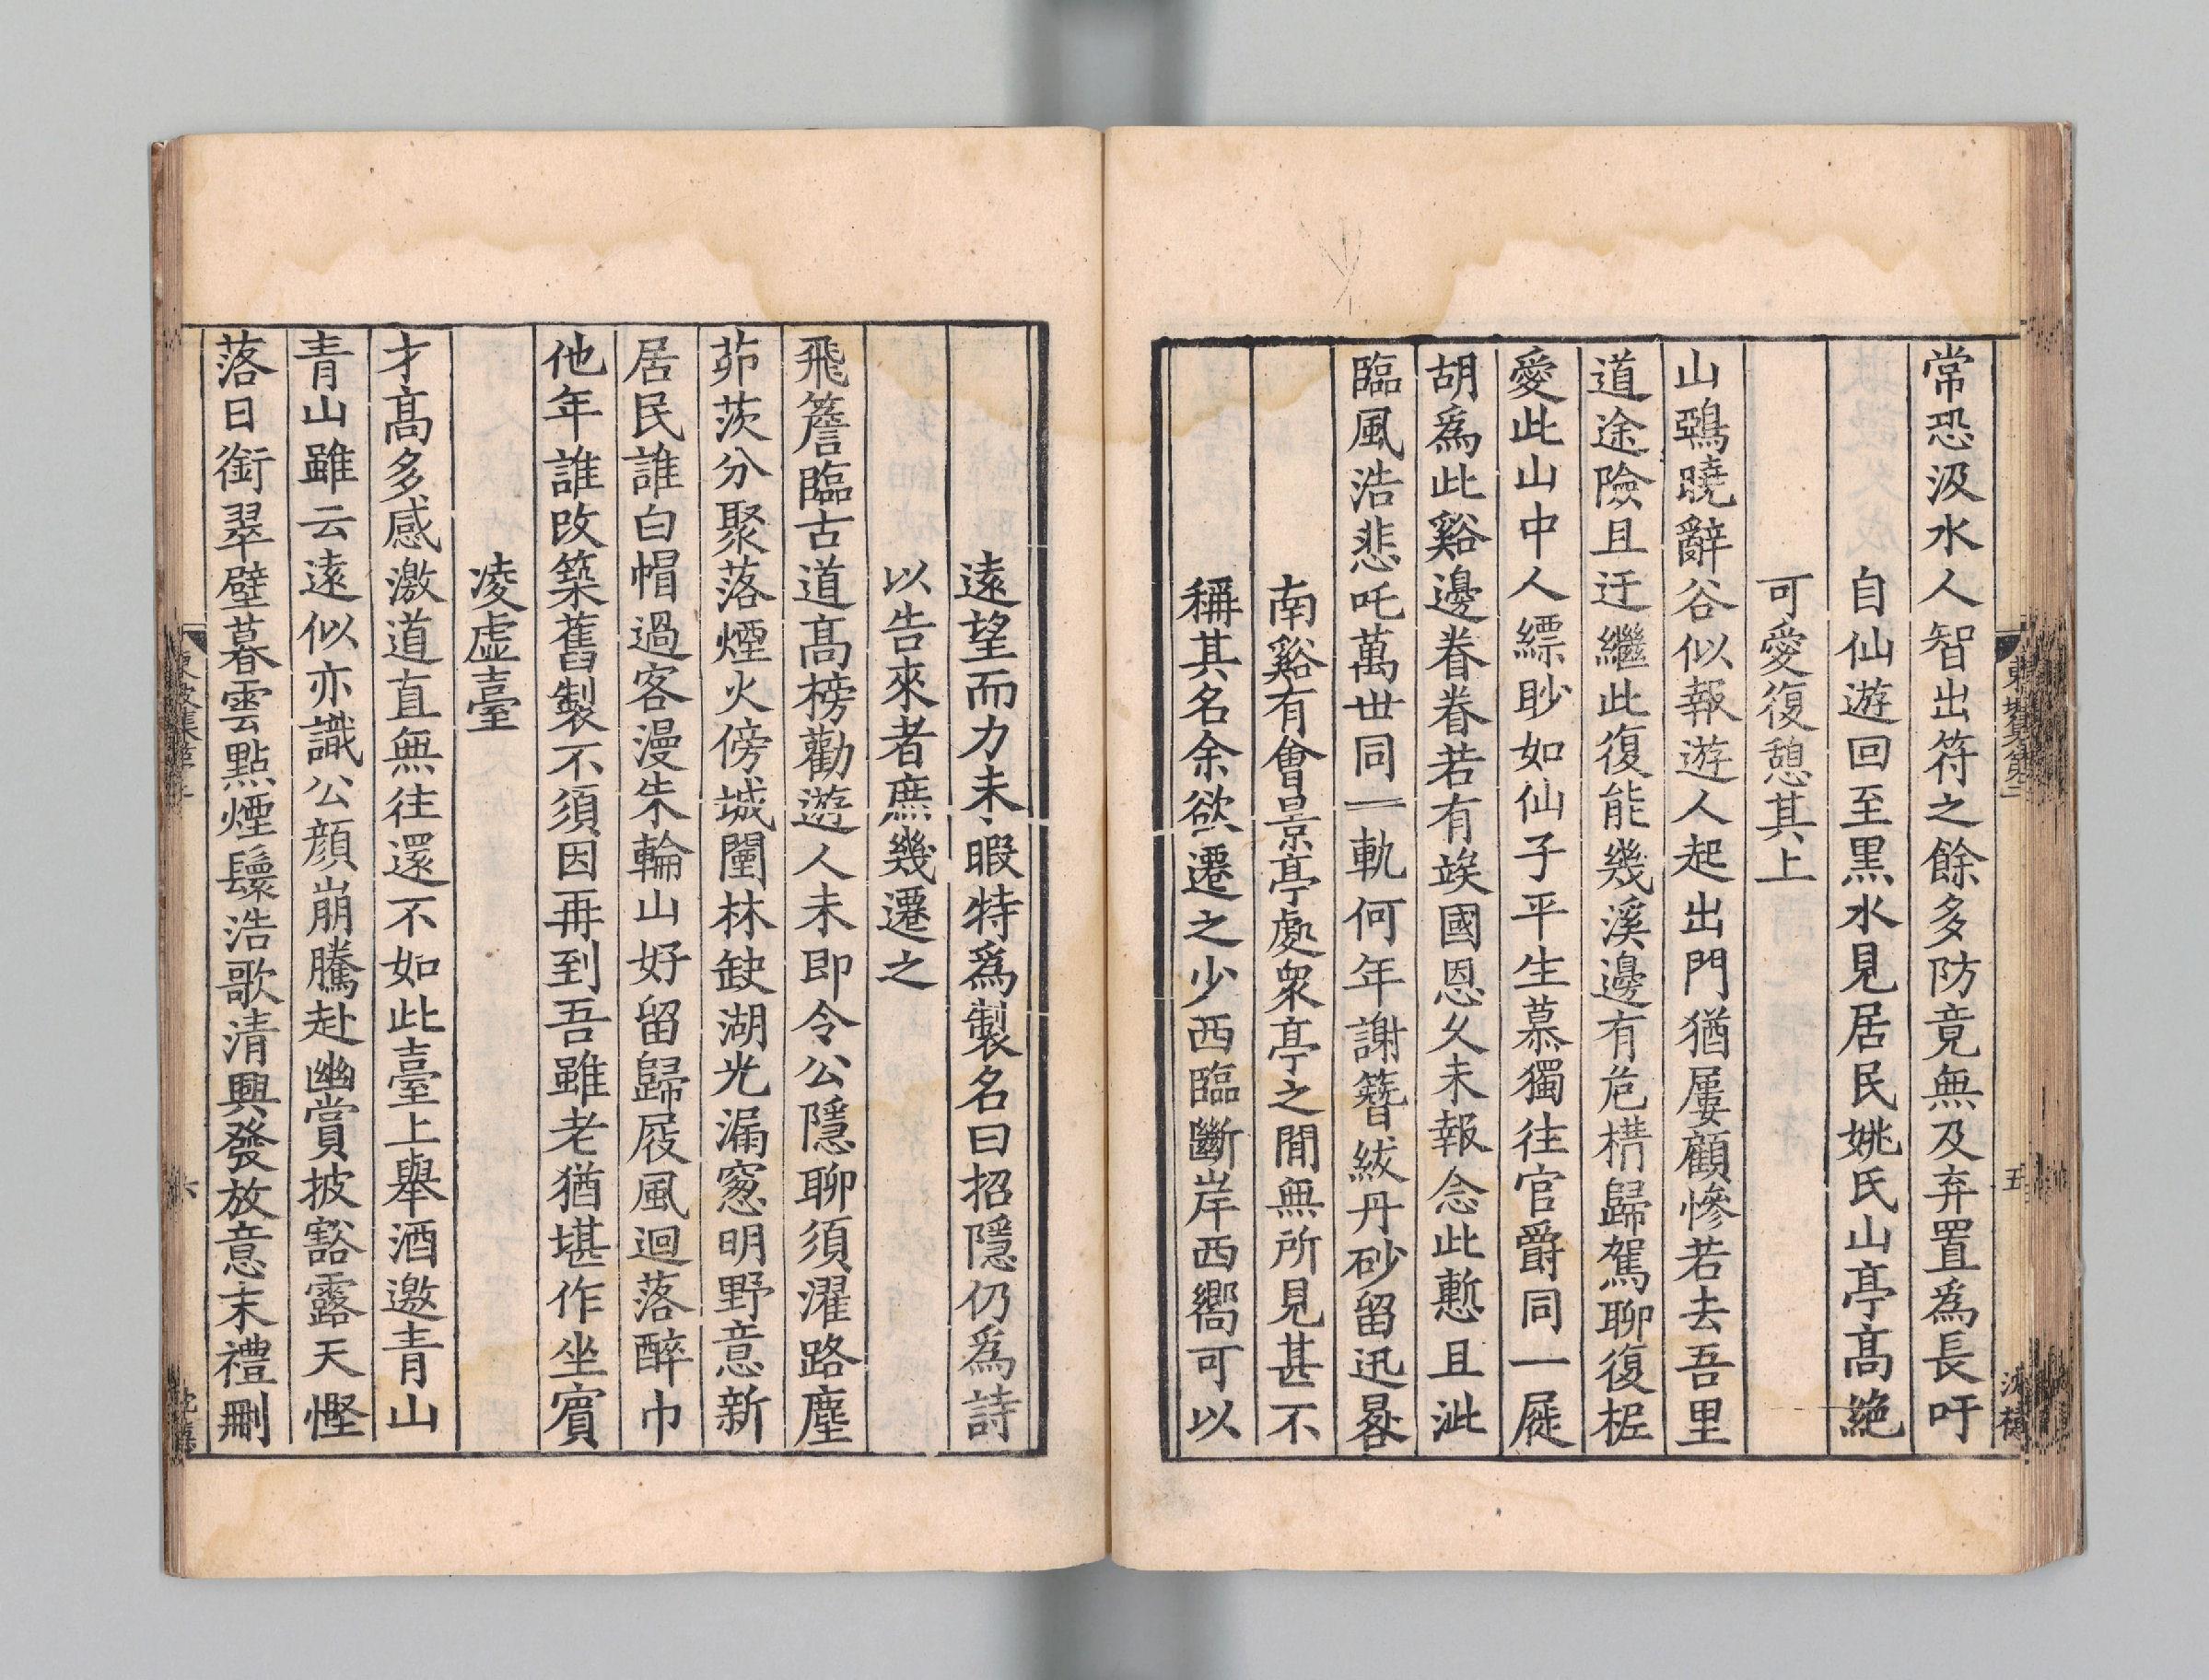 常恐汲水人智出符之餘多防竟無及弃置爲長吁
自仙遊回至黒水見居民姚氏山亭髙絶
可愛復憩其上
山鵶曉辭谷似報遊人起出門猶屢顧慘若去吾里
道途險且迂繼此復能幾溪邊有危構歸駕聊復柅
愛此山中人縹眇如仙子平生慕獨往官爵同一屣
胡爲此谿邊眷眷若有竢國恩久未報念此慙且泚
臨風浩悲吒萬世同一軌何年謝簪紱丹砂留迅晷
南谿有會景亭處衆亭之間無所見甚不
稱其名余欲遷之少西臨斷岸西嚮可以
東坡集第二
五
逺望而力未暇特爲製名曰招隱仍爲詩
以告來者庶幾遷之
飛簷臨古道髙榜勸遊人未即令公隱聊須濯路塵
茆茨分聚落煙火傍城闉林缺湖光漏窻明野意新
居民誰白帽過客漫朱輪山好留歸屐風迴落醉巾
他年誰改築舊製不須因再到吾雖老猶堪作坐賔
凌虚臺
才髙多感激道直無往還不如此臺上舉酒邀青山
青山雖云逺似亦識公顔崩騰赴幽賞披豁露天慳
落日銜翠壁暮雲點煙鬟浩歌清興發放意末禮刪
六